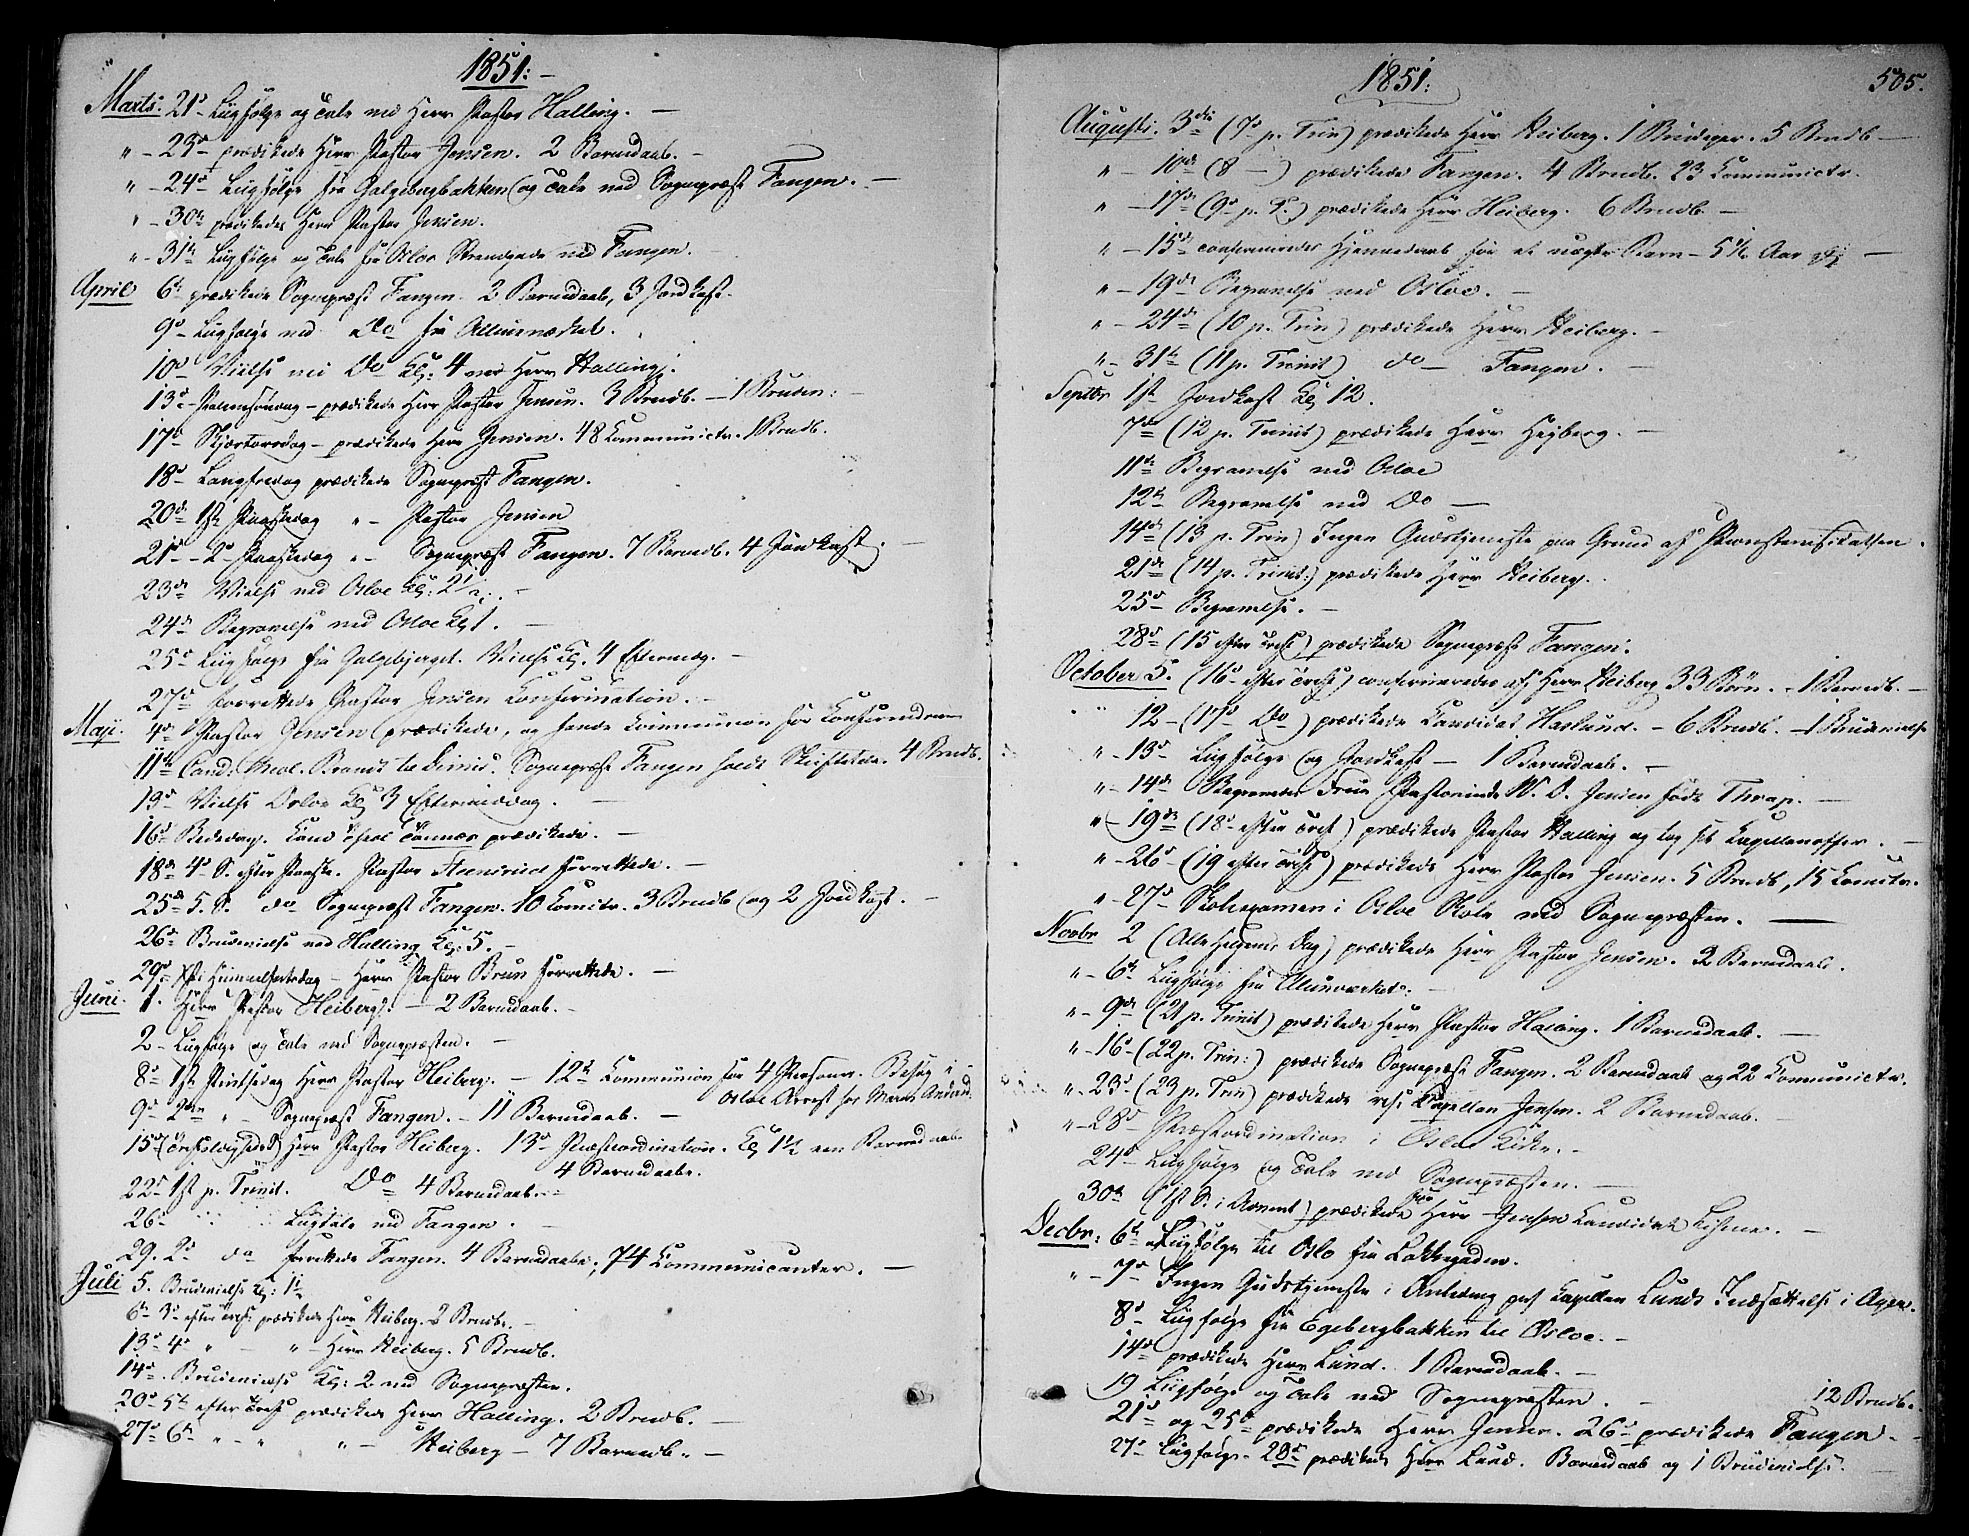 1851:
Marts. 21d Liigfølge og Tale ved Herr Pastor Halling.
" - 23d prædikede Herr Pastor Jensen. 2 Barnedaab.
" - 24d Liigfølge fra Galgebergbakken (og Tale ved Sognepræst Fangen.
" - 30te prædikede Herr Pastor Jensen.
" - 31te Liigfølge og Tale fra Osloe Strandgade ved Fangen.
April 6te prædikede Sognepræst Fangen. 2 Barnedaab, 3 Jordkast.
9d Liigfølge ved Do fra Alluunværket.
10d Vielse ved Do Kl: 4 ved Herr Halling.
13d Palmesøndag - prædikede Herr Pastor Jensen. 3 Barnedb. - 1 Bruden:
17d Skjærtorsdag - prædikede Herr Jensen. 48 Communictr. 1 Barndb.
18d Langfredag prædikede Sognepræst Fangen.
20de 1ste Paaskedag " - Pastor Jensen
21d - 2d Paaskedag " - Sognepræst Fangen. 7 Barnedb. 4 Jordkast.
23de Vielse ved Osloe Kl: 2 1/2.
24de Begravelse ved Osloe Kl 1.
25d Liigfølge fra Galgebjerget. Vielse Kl. 4 Eftermdg.
27d forrettede Pastor Jensen Confirmation.
Maji. 4de Pastor Jensen prædikede, og havde Communion for Confirmderne
11te Cand: theol. Brandt til dimis. Sognepræst Fangen holdt Skriftetale. 4 Barndb.
13d Vielse Osloe Kl 3 Eftermiddag.
16d Bededag. Cand theol Tønnes prædikede.
18de 4d S. efter Paaske. Pastor Steensrud forrettede.
25de 5. S. do Sognepræst Fangen. 10 Comctr. 3 Barndb (og 2 Jordkast.
26d Brudevielse ved Halling Kl: 5.
29d Xsti Himmelfartsdag - Herr Pastor Brun forrettede.
Juni. 1. Herr Pastor Heiberg: - 2 Barnedaab.
2 - Liigfølge og Tale ved Sognepræsten.
8d 1st Pintsedag Herr Pastor Heiberg: - 12te Communion for 4 Personer. Besøg i
Osloe Arrest for
9d 2den " - Sognepræst Fangen. - 11 Barnedaab.
15d (Trefoldighedsd) Herr Pastor Heiberg. 13d Præsteordination. Kl 1 1/2 een Barnedaab
4 Barnedaab.
22d 1st p. Trinit. Do 4 Barnedaab.
26d Liigtale ved Fangen.
29. 2d do forrettede Fangen. 4 Barnedaab, 74 Communicanter.
Juli 5. Brudevielse Kl: 1 1/2
6te 3d efter Tref: prædikede Herr Heiberg. 2 Barndb.
13d 4d " - " - Herr Heiberg. 5 Barndb.
14d. Brudevielse Kl: 2 ved Sognepræsten.
20d 5te efter Tref: prædikede Herr Halling. 2 Barndb.
27d 6te " - " " - Heiberg - 7 Barnedb.
1851: 505.
Augusti. 3die (7d p. Trin) prædikede Herr Heiberg. 1 Brudepar. 5 Barndb
" - 10de (8 -) prædikede Fangen. 4 Barndb. 23 Communictr.
" - 17de (9d p. T.) prædikede Herr Heiberg. 6 Barndb
" - 15de confirmeredes Hjemmedaab for et uægte Barn - 5 1/2 Aar
" - 19de Begravelse ved Osloe.
" - 24de (10 p. Trin) prædikede Herr Heiberg.
" - 31te (11 p. Trinit) do - Fangen.
Septbr 1st Jordkast Kl 12.
7de (12 p. Trinit) prædikede Herr Heyberg.
11te Begravelse ved Osloe
12te Begravelse ved Do
14de (13 p. Trin) Ingen Gudstjeneste paa Grund af Provstevisitatsen.
21de (14 p. Trinit:) prædikede Herr Heiberg.
25d Begravelse.
28d (15 efter Tref) prædikede Sognepræst Fangen.
October 5. (16d efter Tref) confirmeredes af Herr Heiberg 33 Børn. - 1 Barnedb.
12 - (17d Do) prædikede Candidat Haslund. - 6 Barndb. - 1 Brudevielse
" - 13d Liigfølge (og Jordkast - 1 Barnedaab.
" - 14de Begravedes Frue Pastorinde Jensen født Thrap.
" - 19de (18d efter Tref) prædikede Pastor Halling og tog sit Kapellanoffer.
" - 26d - (19 efter Tref) prædikede Herr Pastor Jensen. 5 Barndb, 15 Comctr.
" - 27d Skoleexamen i Osloe Skole ved Sognepræsten.
Novbr 2 (Alle Helgens Dag) prædikede Herr Pastor Jensen. 2 Barnedaab.
" - 6te Liigfølge fra Alunværket.
" - 9de (21 p. Trinit) prædikede Herr Pastor Halling. 1 Barnedaab.
" - 16d - (22 p. Trin:) prædikede Sognepræst Fangen. 2 Barnedaab og 22 Communictr.
" - 23d - (23 p. Trin) prædikede res: Capellan Jensen. 2 Barnedaab.
" - 28d Præsteordination i Osloe Kirke.
24d Liigfølge og Tale ved Sognepræsten.
30te (1st S. i Advent) prædikede for Herr Jensen Candidat
Decbr: 6te Liigfølge til Oslo fra Lakkegaden.
" - 7d Ingen Gudstjeneste i Anledng af Capellan Lunds Indsættelse i Agers.
8d Liigfølge fra Egebergbakken til Osloe.
14d prædikede Herr Lund. 1 Barnedaab.
19 Liigfølge og Tale ved Sognepræsten.
12 Barndb.
21d og 25d prædikede Herr Jensen. 26d prædikede Fangen
27d Liigfølge. 28d prædikede Herr Lund. Barnedaab og 1 Brudevielse.